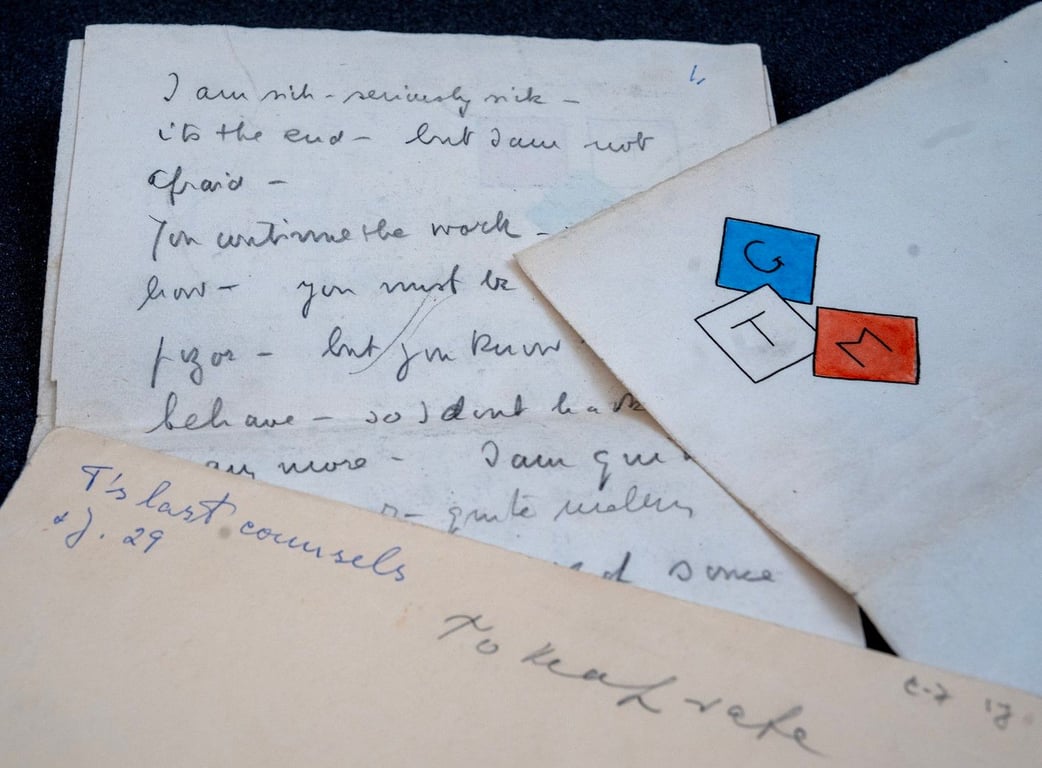 1,
I am sick - seriously sick -
its the end - but I am not
afraid -
You continue the work -
how - you must be
but you know
behave - so I dont have
any more - I am
quite
some
G
T
M
T's last counsels
+J. 29
To Keep safe